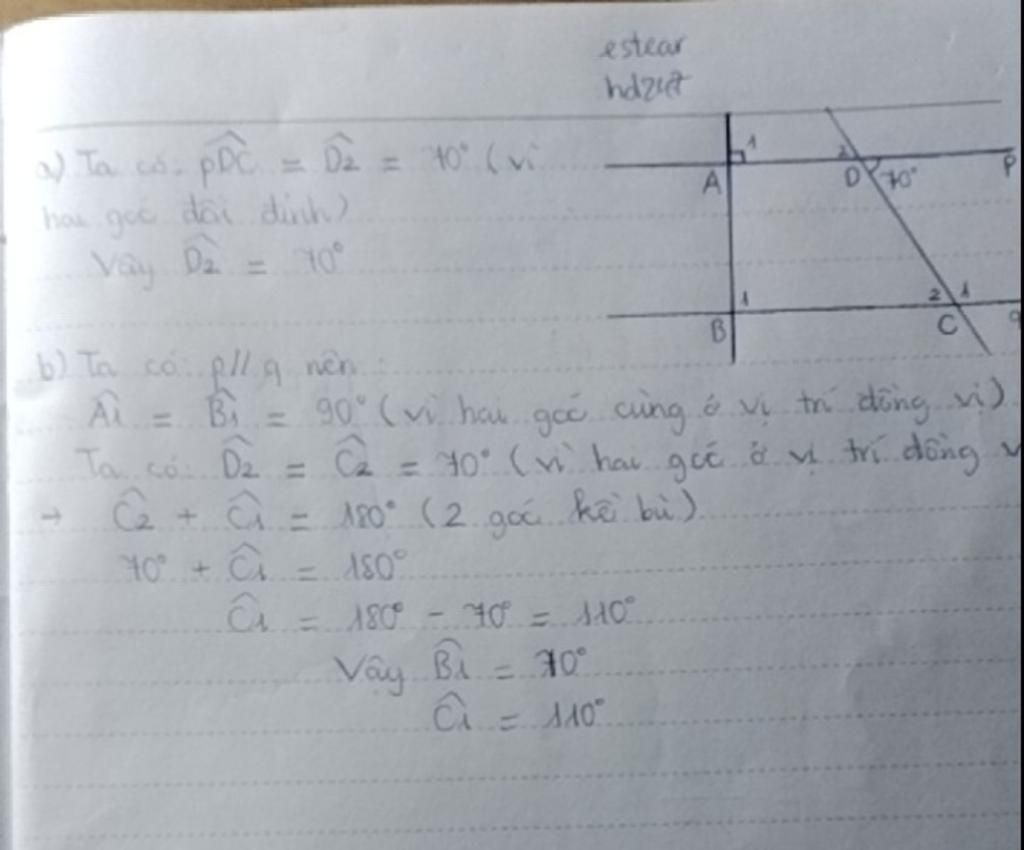 estear
hdziet
a) Ta có: pDC = D2 = 70° (vì
hai góc đối đỉnh)
Vậy D2 = 70°
1
2
A
D
70°
P
1
2
1
B
C
q
b) Ta có: p // q nên:
A1 = B1 = 90° (vì hai góc cùng ở vị trí đồng vị)
Ta có: D2 = C2 = 70° (vì hai góc ở vị trí đồng v
→ C2 + C1 = 180° (2 góc kề bù)
70° + C1 = 180°
C1 = 180° - 70° = 110°
Vậy B1 = 70°
C1 = 110°